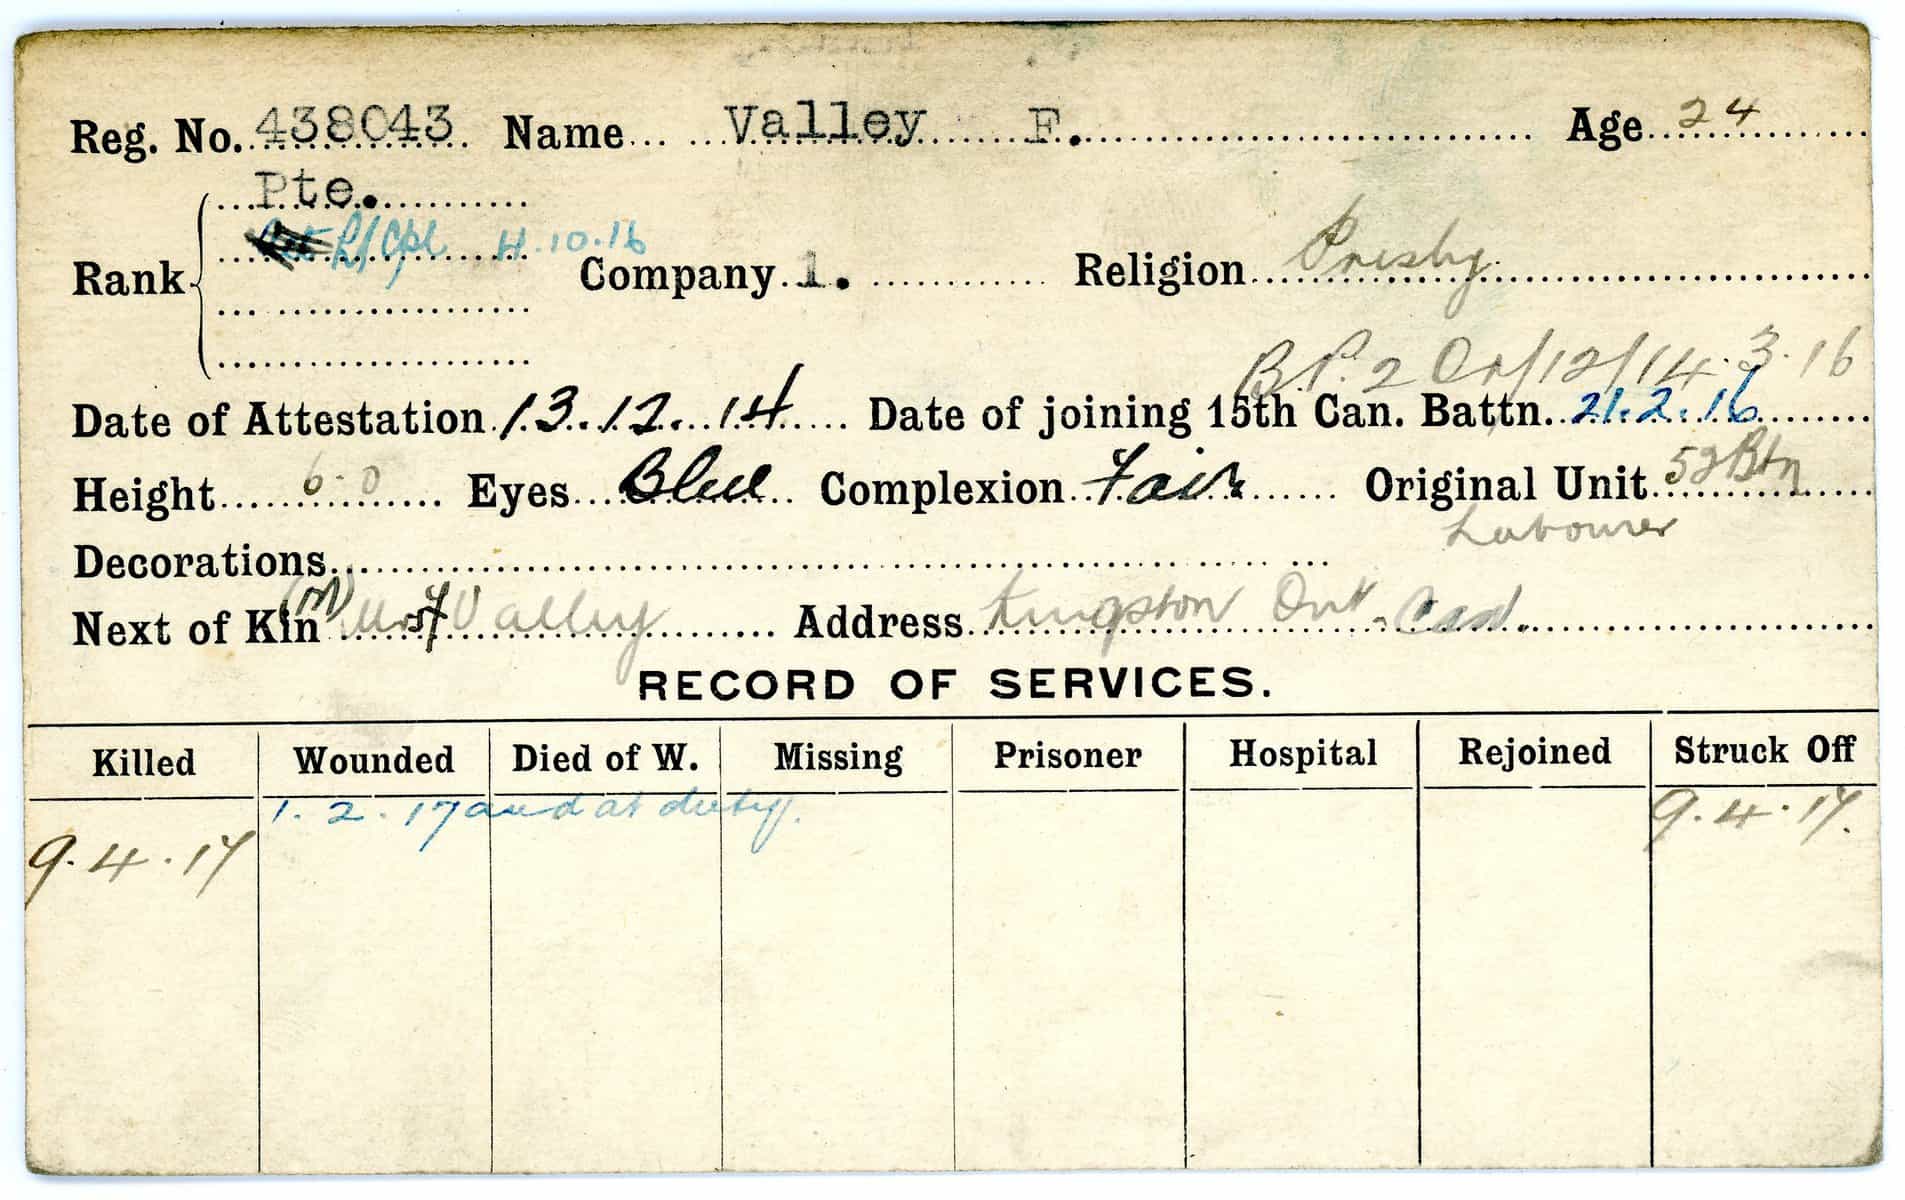 Reg. No. 438043 Name Valley F. Age 24
Pte.
L/Cpl 4.10.16
Rank Company 1. Religion Presby
B.P. 2 Or/12/14.3.16
Date of Attestation 13.12.14 Date of joining 15th Can. Battn. 21.2.16
Height 6-0 Eyes Blue Complexion Fair Original Unit 52 Btn
Labourer
Decorations
Next of Kin (M) Mrs F Valley Address Kingston Ont. Can.
RECORD OF SERVICES.
Killed Wounded Died of W. Missing Prisoner Hospital Rejoined Struck Off
1.2.17 and at duty. 9.4.17.
9.4.17